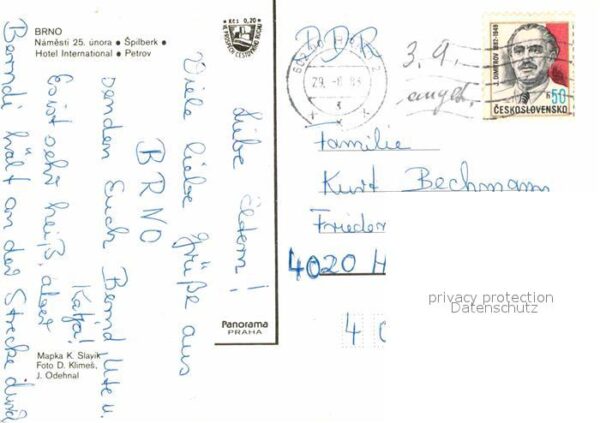 BRNO
Náměsti 25. února • Špilberk •
Hotel International • Petrov
Kčs 0,20
Liebe Eltern!
Viele liebe Grüße aus
BRNO
senden Euch Bernd Ute u.
Katja!
Es ist sehr heiß, aber
Berndi hält an der Strecke durch
Mapka K. Slavík
Foto D. Klimeš,
J. Odehnal
Panorama
PRAHA
DDR
3. 9.
angek.
29. -8. 83
J. DIMITROV 1882-1949
50
ČESKOSLOVENSKO
Familie
Kurt Bechmann
Frieder
4020 H
4 0
privacy protection
Datenschutz